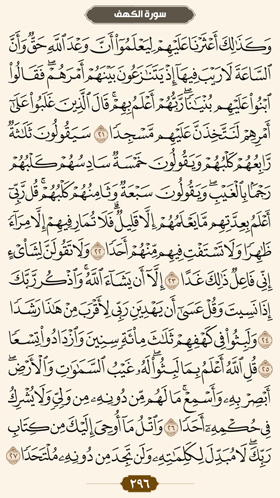 سورة الكهف
وَكَذَٰلِكَ أَعْثَرْنَا عَلَيْهِمْ لِيَعْلَمُوٓا۟ أَنَّ وَعْدَ ٱللَّهِ حَقٌّ وَأَنَّ
ٱلسَّاعَةَ لَا رَيْبَ فِيهَآ إِذْ يَتَنَٰزَعُونَ بَيْنَهُمْ أَمْرَهُمْ ۖ فَقَالُوا۟
ٱبْنُوا۟ عَلَيْهِم بُنْيَٰنًا ۖ رَّبُّهُمْ أَعْلَمُ بِهِمْ ۚ قَالَ ٱلَّذِينَ غَلَبُوا۟ عَلَىٰٓ
أَمْرِهِمْ لَنَتَّخِذَنَّ عَلَيْهِم مَّسْجِدًا ٢١ سَيَقُولُونَ ثَلَٰثَةٌ
رَّابِعُهُمْ كَلْبُهُمْ وَيَقُولُونَ خَمْسَةٌ سَادِسُهُمْ كَلْبُهُمْ
رَجْمًۢا بِٱلْغَيْبِ ۖ وَيَقُولُونَ سَبْعَةٌ وَثَامِنُهُمْ كَلْبُهُمْ ۚ قُل رَّبِّىٓ
أَعْلَمُ بِعِدَّتِهِم مَّا يَعْلَمُهُمْ إِلَّا قَلِيلٌ ۗ فَلَا تُمَارِ فِيهِمْ إِلَّا مِرَآءً
ظَٰهِرًا وَلَا تَسْتَفْتِ فِيهِم مِّنْهُمْ أَحَدًا ٢٢ وَلَا تَقُولَنَّ لِشَا۟ىْءٍ
إِنِّى فَاعِلٌ ذَٰلِكَ غَدًا ٢٣ إِلَّآ أَن يَشَآءَ ٱللَّهُ ۚ وَٱذْكُر رَّبَّكَ
إِذَا نَسِيتَ وَقُلْ عَسَىٰٓ أَن يَهْدِيَنِ رَبِّى لِأَقْرَبَ مِنْ هَٰذَا رَشَدًا
٢٤ وَلَبِثُوا۟ فِى كَهْفِهِمْ ثَلَٰثَ مِا۟ئَةٍ سِنِينَ وَٱزْدَادُوا۟ تِسْعًا
٢٥ قُلِ ٱللَّهُ أَعْلَمُ بِمَا لَبِثُوا۟ ۖ لَهُۥ غَيْبُ ٱلسَّمَٰوَٰتِ وَٱلْأَرْضِ ۖ
أَبْصِرْ بِهِۦ وَأَسْمِعْ ۚ مَا لَهُم مِّن دُونِهِۦ مِن وَلِىٍّ وَلَا يُشْرِكُ
فِى حُكْمِهِۦٓ أَحَدًا ٢٦ وَٱتْلُ مَآ أُوحِىَ إِلَيْكَ مِن كِتَابِ
رَبِّكَ ۖ لَا مُبَدِّلَ لِكَلِمَٰتِهِۦ وَلَن تَجِدَ مِن دُونِهِۦ مُلْتَحَدًا ٢٧
٢٩٦